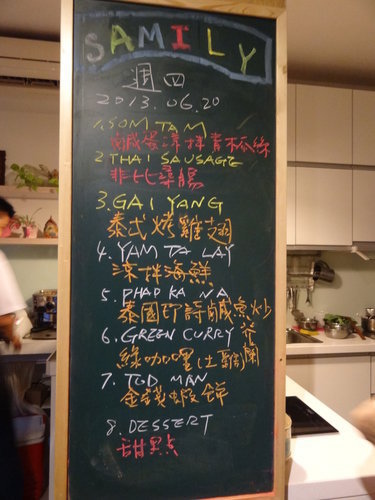 SAMILY
週四
2013.06.20
1. SOM TAM
鹹蛋涼拌青木瓜絲
2 THAI SAUSAGE
非比蘭腸
3. GAI YANG
泰式烤雞翅
4. YAM TA LAY
涼拌海鮮
5. PHAD KA NA
泰國芥藍鹹魚炒
6. GREEN CURRY
綠咖哩
7. TOD MAN
金錢蝦餅
8. DESSERT
甜點